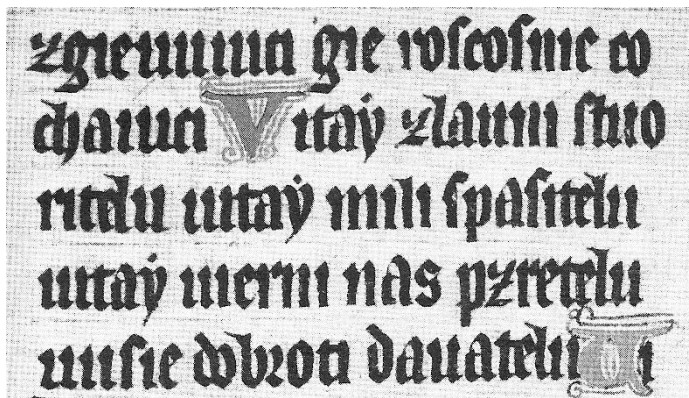 zgieuuiuci gie roscosnie co
chaiuci Vitaẏ zlauni stuo
ritelu uitaẏ mili spasitelu
uitaẏ uerni nas pzretelu
uusie dobroti dauatelu